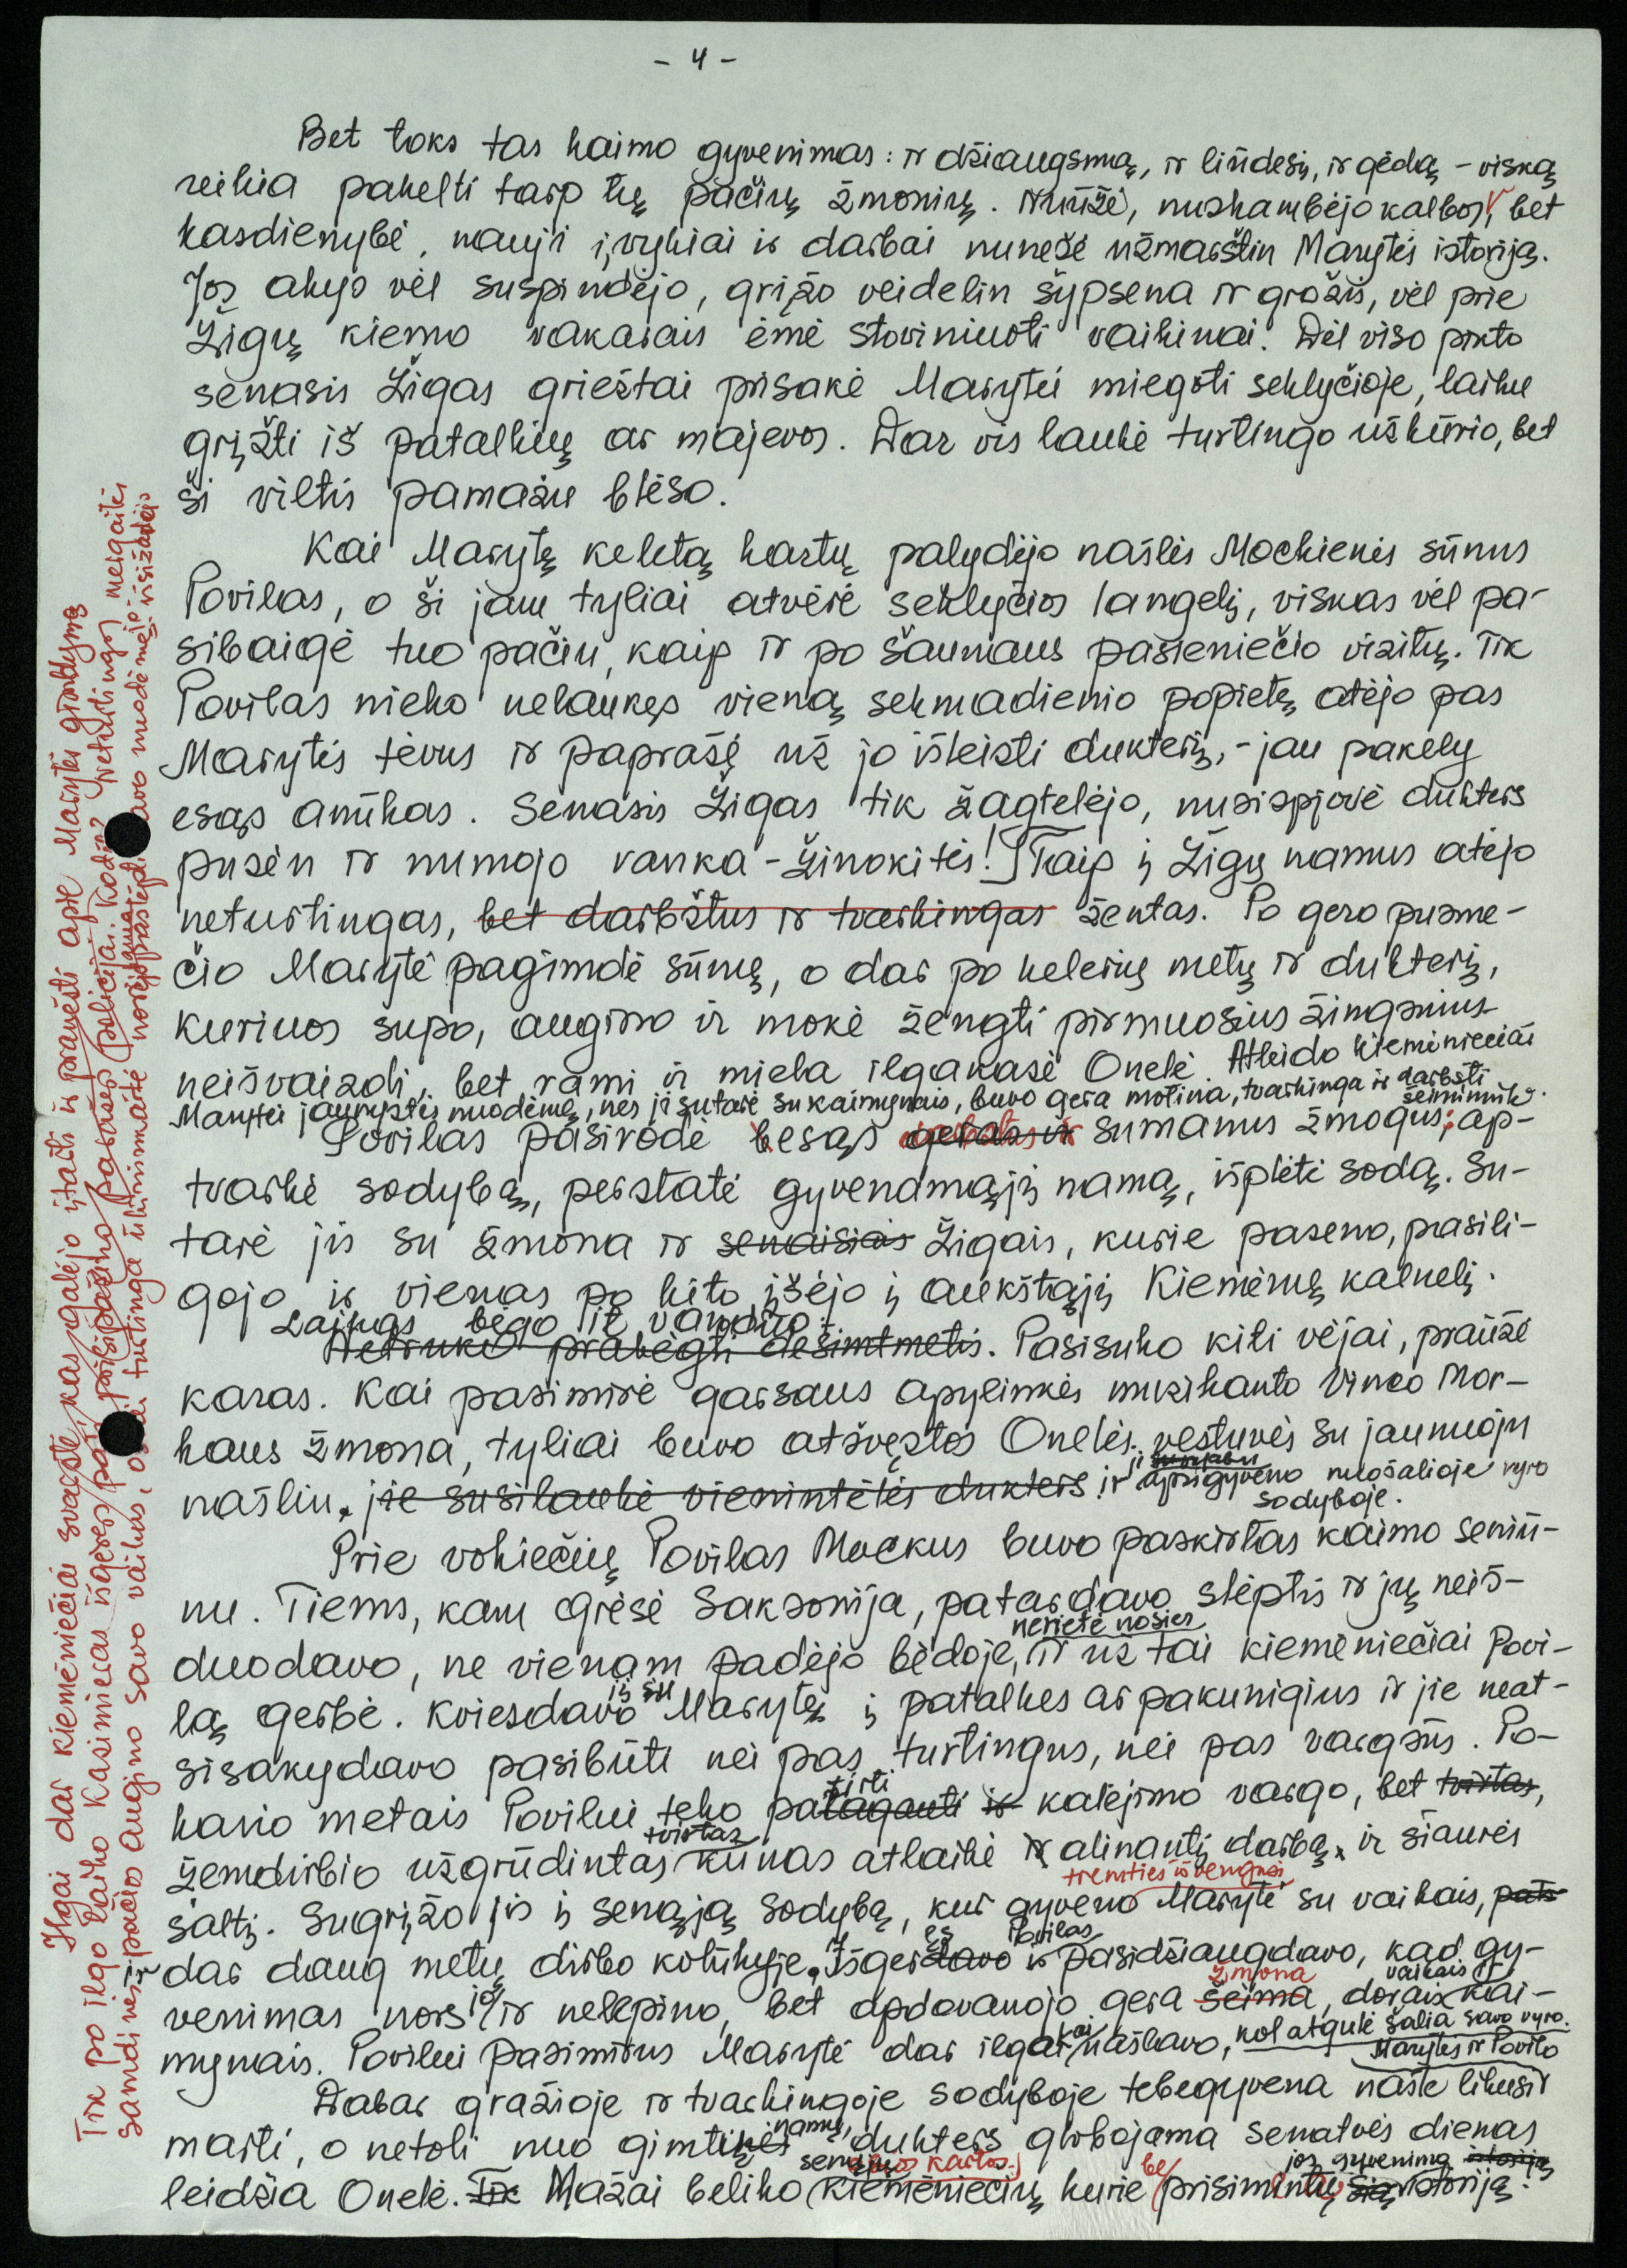 - 4 -
Bet toks tas kaimo gyvenimas: ir džiaugsmą, ir liūdesį, ir gėdą - viską
reikia pakelti tarp tų pačių žmonių. Nuūžė, nuskambėjo kalbos, bet
kasdienybė, nauji įvykiai ir darbai nunešė užmarštin Marytės istoriją.
Jos akyse vėl suspindėjo, grįžo veidelin šypsena ir grožis, vėl prie
Žigų kiemo vakarais ėmė stoviniuoti vaikinai. Dėl viso pikto
senasis Žigas griežtai prisakė Marytei miegoti seklyčioje, laiku
grįžti iš patalkių ar majevos. Dar vis laukė turtingo užkurio, bet
ši viltis pamažu blėso.
Kai Marytę keletą kartų palydėjo našlės Mockienės sūnus
Povilas, o ši jam tyliai atvėrė seklyčios langelį, viskas vėl pa-
sibaigė tuo pačiu, kaip ir po šaunaus pasieniečio vizitų. Tik
Povilas nieko nelaukęs vieną sekmadienio popietę atėjo pas
Marytės tėvus ir paprašė už jo išleisti dukterį, - jau pakely
esąs anūkas. Senasis Žigas tik žagtelėjo, nusispjovė dukters
pusėn ir numojo ranka - žinokitės! Taip į Žigų namus atėjo
neturtingas, bet darbštus ir tvarkingas žentas. Po gero pusme-
čio Marytė pagimdė sūnų, o dar po kelerių metų ir dukterį,
kuriuos supo, augino ir mokė žengti pirmuosius žingsnius
neišvaizdi, bet rami ir miela ilgakasė Onelė. Atleido kiemėniečiai
Marytei jaunystės nuodėmę, nes ji sutarė su kaimynais, buvo gera motina, tvarkinga ir darbšti
šeimininkė.
Povilas pasirodė besąs geras ir sumanus žmogus; ap-
tvarkė sodybą, perstatė gyvenamąjį namą, išplėtė sodą. Su-
tarė jis su žmona ir senaisiais Žigais, kurie paseno, prasili-
gojo ir vienas po kito išėjo į aukštąjį Kiemėnų kalnelį.
Laikas bėgo it vanduo.
Netruko prabėgti dešimtmetis. Pasisuko kiti vėjai, praūžė
karas. Kai pasimirė garsaus apylinkės muzikanto Vinco Mor-
kaus žmona, tyliai buvo atšvęstos Onelės vestuvės su jaunuoju
našliu, jie susilaukė vienintėlės dukters ir ji apsigyveno nuošalioje vyro
sodyboje.
Prie vokiečių Povilas Mockus buvo paskirtas kaimo seniū-
nu. Tiems, kam grėsė Saksonija, patardavo slėptis ir jų neiš-
nerietė nosies
duodavo, ne vienam padėjo bėdoje, ir už tai kiemėniečiai Povi-
lą gerbė. Kviesdavo jį su Maryte į patalkes ar pakunigius ir jie neat-
sisakydavo pasibūti nei pas turtingus, nei pas vargšus. Po-
tirti
kario metais Povilui teko pataganti ir kalėjimo vargo, bet tvirtas,
tvirtas
žemdirbio užgrūdintas kūnas atlaikė ir alinantį darbą, ir šiaurės
tremties išvengusi
šaltį. Sugrįžo jis į senąją sodybą, kur gyveno Marytė su vaikais, pats
ęs Povilas
dar daug metų dirbo kolūkyje. Išgerdavo ir pasidžiaugdavo, kad gy-
žmona vaikais ir
venimas nors jo ir nelepino, bet apdovanojo gera šeima, dorais kai-
mynais. Povilui pasimirus Marytė dar ilgai našlavo, kol atgulė šalia savo vyro.
Marytės ir Povilo
Dabar gražioje ir tvarkingoje sodyboje tebegyvena našle likusi
marti, o netoli nuo gimtinės namų, dukters globojama senatvės dienas
senųjų kartos jos gyvenimo istoriją
leidžia Onelė. Tik Mažai beliko kiemėniečių kurie be prisimintų šią istoriją.
Ilgai dar kiemėniečiai svarstė, kas galėjo įtarti ir pranešti apie Marytės girdymą
Tik po ilgo laiko Kasimieras išgėręs pats prisipažino parašęs policijai. Kodėl? Neturtingos mergaitės
samdinės ir pačios augino savo vaikus, o turtinga ūkininkaitė norėjo paslėpti savo nuodėmę.